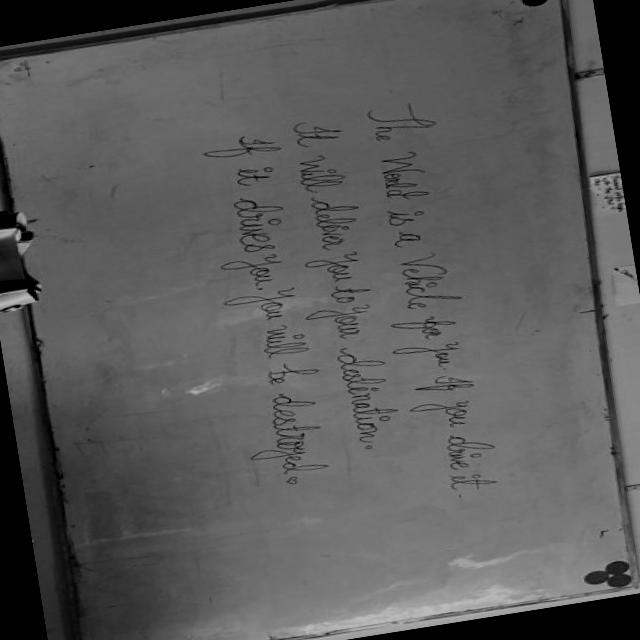 The Mind is a Vehicle to you If you drive it,
It will deliver you to your destination.
If it drives you You will be destroyed.